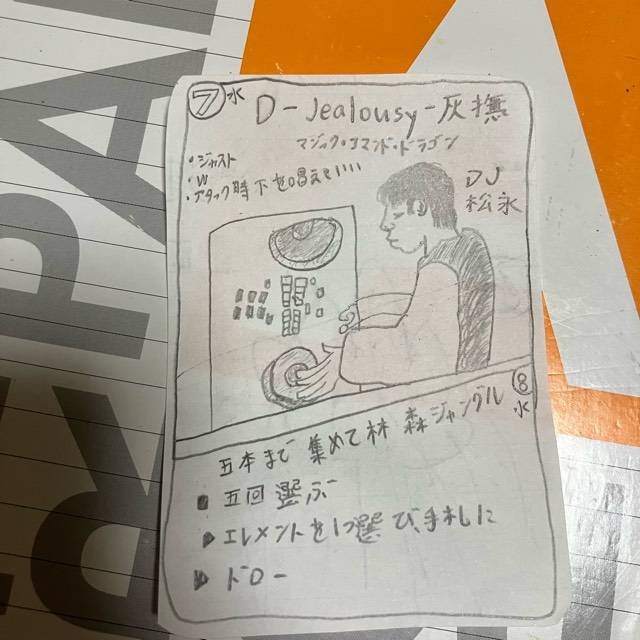 7 水 D-Jealousy-灰撫
マジック・コマンド・ドラゴン
・ジャスト
・W
・アタック時下を唱えていい
DJ
松永
8
水
五本まで集めて林 森ジャングル
■五回選ぶ
▶エレメントを1つ選び、手札に
▶ドロー